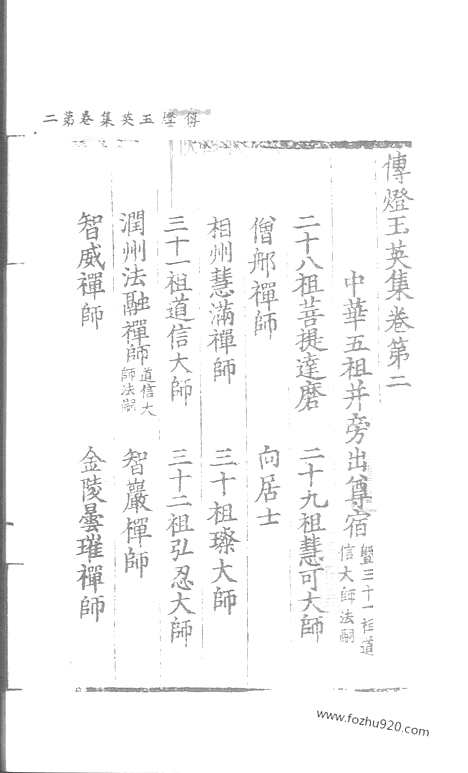 傳燈玉英集卷第二
傳燈玉英集卷第二
中華五祖并旁出尊宿暨三十一祖道信大師法嗣
二十八祖菩提達磨 二十九祖慧可大師
僧那禪師 向居士
相州慧滿禪師 三十祖璨大師
三十一祖道信大師 三十二祖弘忍大師
潤州法融禪師道信大師法嗣 智巖禪師
智威禪師 金陵曇璀禪師
www.fozhu920.com